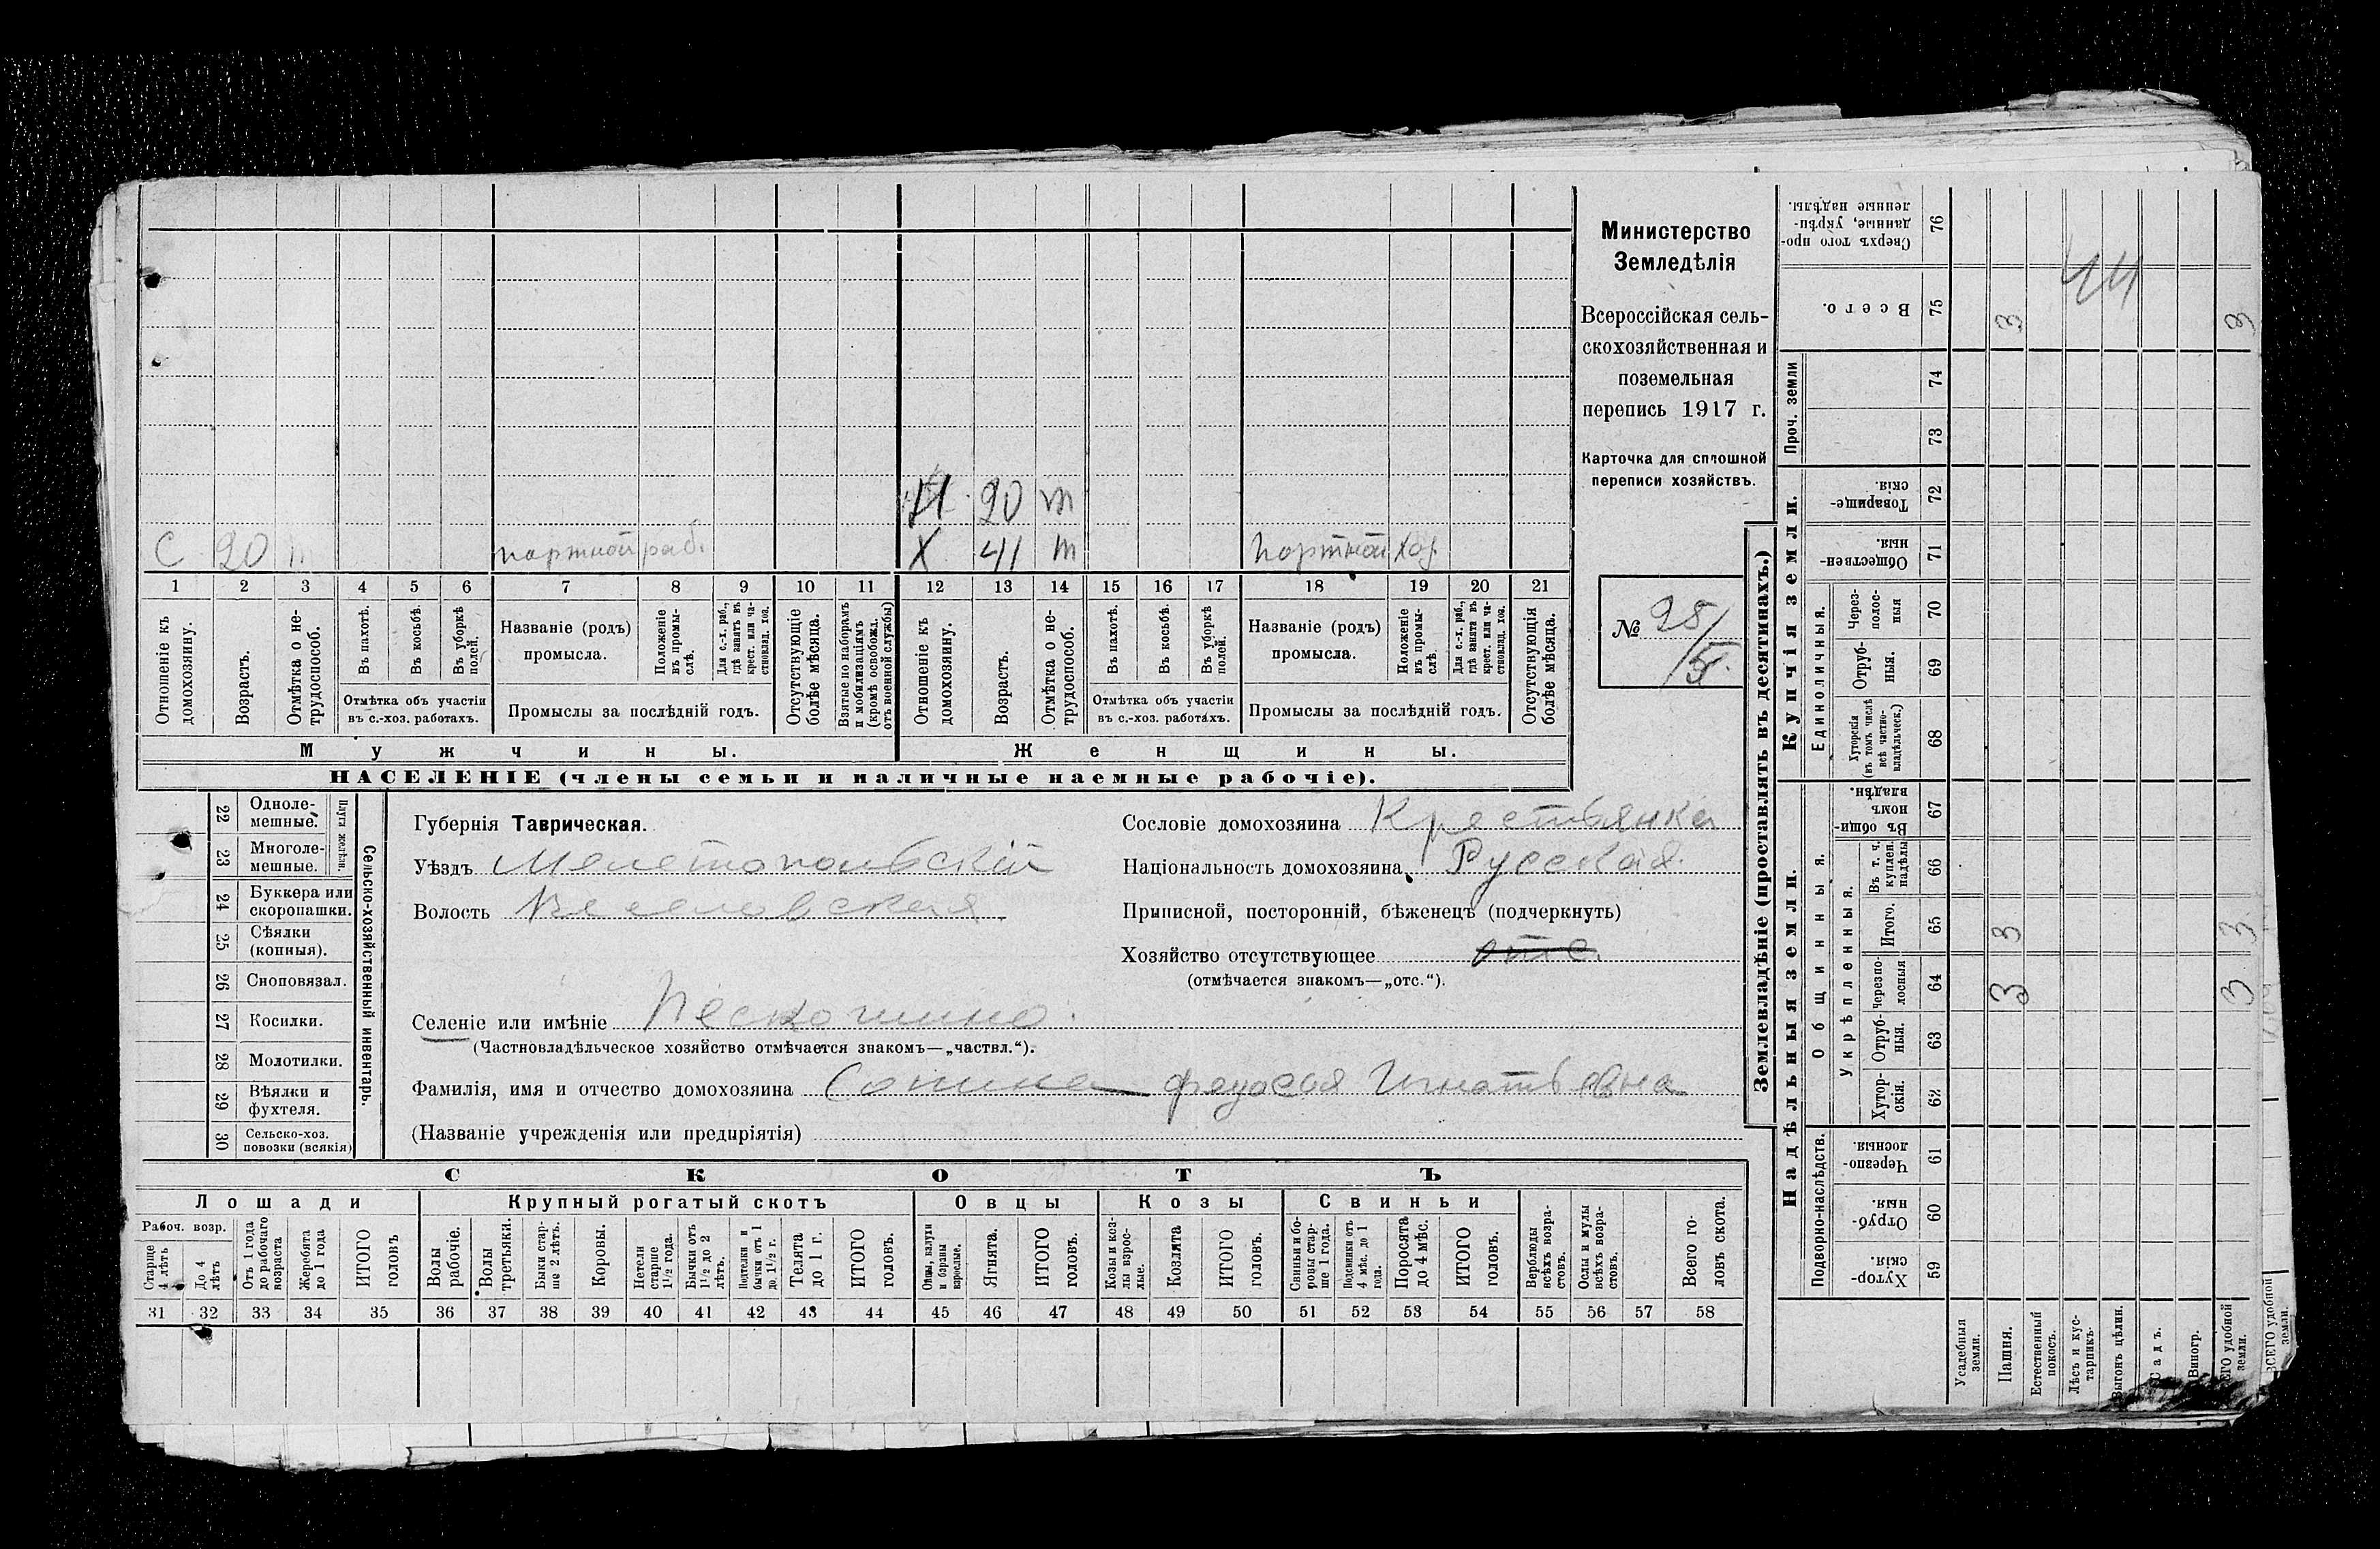 Министерство
Земледѣлія
Всероссійская сель-
скохозяйственная и
поземельная
перепись 1917 г.
Карточка для сплошной
переписи хозяйствъ.
№ 25/5.
20 т
С 20 т портной раб. Х 41 т портной хоз.
1 2 3 4 5 6 7 8 9 10 11 12 13 14 15 16 17 18 19 20 21
Отношеніе къ домохозяину.
Возрастъ.
Отмѣтка о не-трудоспособ.
Въ пахотѣ.
Въ косьбѣ.
Въ уборкѣ полей.
Отмѣтка объ участіи
въ с.-хоз. работахъ.
Названіе (родъ)
промысла.
Положеніе въ промы-слѣ.
Для с.-х. раб., гдѣ занятъ въ крест. или ча-стновлад. хоз.
Промыслы за послѣдній годъ.
Отсутствующіе болѣе мѣсяца.
Взятые по наборамъ и мобилизаціямъ (кромѣ освобожд. отъ военной службы)
Отношеніе къ домохозяину.
Возрастъ.
Отмѣтка о не-трудоспособ.
Въ пахотѣ.
Въ косьбѣ.
Въ уборкѣ полей.
Отмѣтка объ участіи
въ с.-хоз. работахъ.
Названіе (родъ)
промысла.
Положеніе въ промы-слѣ.
Для с.-х. раб., гдѣ занята въ крест. или ча-стновлад. хоз.
Промыслы за послѣдній годъ.
Отсутствующія болѣе мѣсяца.
Мужчины. Женщины.
НАСЕЛЕНІЕ (члены семьи и наличные наемные рабочіе).
Сельско-хозяйственный инвентарь.
Плуги желѣзн.
22 Одноле-мешные.
23 Многоле-мешные.
24 Буккера или скоропашки.
25 Сѣялки (конныя).
26 Сноповязал.
27 Косилки.
28 Молотилки.
29 Вѣялки и фухтеля.
30 Сельско-хоз. повозки (всякія)
Губернія Таврическая.
Уѣздъ Мелетопольскій
Волость Веселовская
Селеніе или имѣніе Пескошино.
(Частновладѣльческое хозяйство отмѣчается знакомъ—„частвл.“).
Сословіе домохозяина Крестьянка
Національность домохозяина Русская.
Приписной, посторонній, бѣженецъ (подчеркнуть)
Хозяйство отсутствующее отс.
(отмѣчается знакомъ—„отс.“).
Фамилія, имя и отчество домохозяина Сопина Федосья Игнатьевна
(Названіе учрежденія или предпріятія)
СКОТЪ
Лошади Крупный рогатый скотъ Овцы Козы Свиньи
Рабоч. возр.
Старше 4 лѣтъ
До 4 лѣтъ
Отъ 1 года до рабочаго возраста
Жеребята до 1 года
ИТОГО головъ
Волы рабочіе.
Волы третьяки.
Быки стар-ше 2 лѣтъ.
Коровы.
Нетели старше 1 1/2 года.
Бычки отъ 1 1/2 до 2 лѣтъ.
Подтелки и бычки отъ 1 до 1 1/2 г.
Телята до 1 г.
ИТОГО головъ.
Овцы, валухи и бараны взрослые.
Ягнята.
ИТОГО головъ.
Козы и коз-лы взрос-лые.
Козлята
ИТОГО головъ.
Свиньи и бо-ровы стар-ше 1 года.
Подсвинки отъ 4 мѣс. до 1 года.
Поросята до 4 мѣс.
ИТОГО головъ.
Верблюды всѣхъ возра-стовъ.
Ослы и мулы всѣхъ возра-стовъ.
Всего го-ловъ скота.
31 32 33 34 35 36 37 38 39 40 41 42 43 44 45 46 47 48 49 50 51 52 53 54 55 56 57 58
Землевладѣніе (проставлять въ десятинахъ.)
Надѣльныя земли.
Купчія земли.
Проч. земли
Подворно-наслѣдств.
Общинныя.
Укрѣпленныя.
Единоличныя.
76 Сверхъ того про-данные, укрѣп-ленные надѣлы.
75 Всего. 3 3
44
74
73
72 Товарище-скія.
71 Обществен-ныя.
70 Через-полос-ныя
69 Отруб-ныя.
68 Хуторскія (въ томъ числѣ всѣ частно-владѣльческ.)
67 Въ общи-номъ владѣн.
66 Въ т. ч. куплен. надѣлы
65 Итого. 3 3
64 Черезпо-лосныя 3 3
63 Отруб-ныя.
62 Хутор-скія.
61 Черезпо-лосныя.
60 Отруб-ныя.
59 Хутор-скія.
Усадебныя земли.
Пашня.
Естественный покосъ.
Лѣсъ и кус-тарникъ.
Выгонъ цѣлин.
Садъ.
Виногр.
ЕГО удобной земли.
ВСЕГО удобной земли.